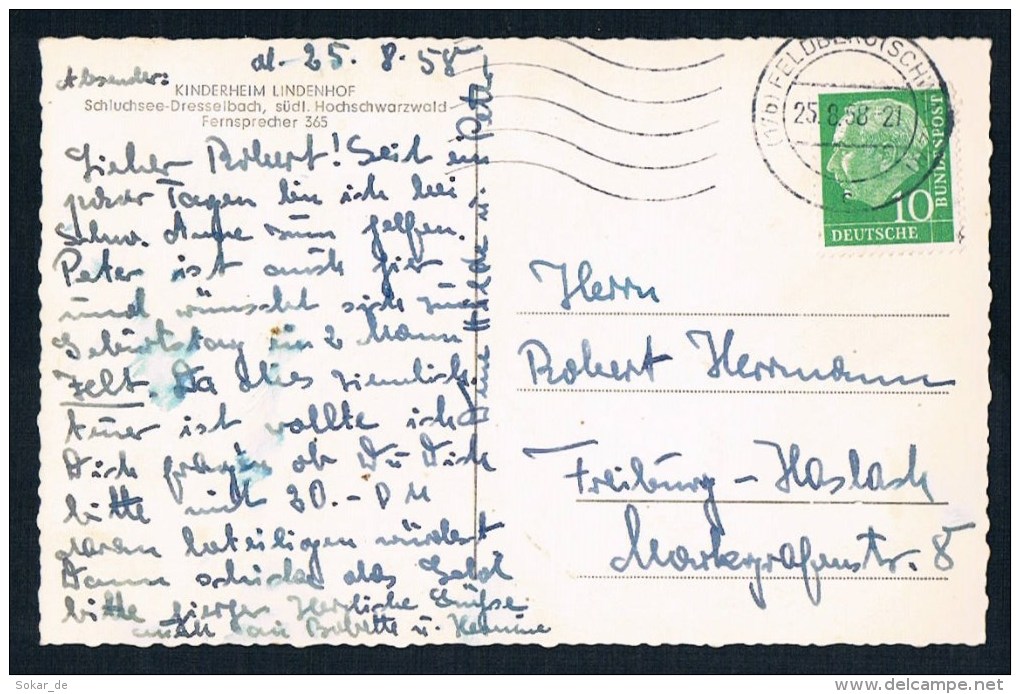 d. 25. 8. 58
Absender:
KINDERHEIM LINDENHOF
Schluchsee-Dresselbach, südl. Hochschwarzwald
Fernsprecher 365
Lieber Robert! Seit ein
paar Tagen bin ich bei
Schw. Anne zum helfen.
Peter ist auch hier
und wünscht sich zum
Geburtstag ein 2 Mann
Zelt. Da dies ziemlich
teuer ist wollte ich
Dich fragen ob Du Dich
bitte mit 30.- DM
daran beteiligen würdest
Dann schicke das Geld
bitte hierher Herzliche Grüße
auch an Babette u. Hermine
Deine Hilde u. Peter
FELDBERG (SCHW
25.8.58-21
c
10
DEUTSCHE
BUNDESPOST
Herrn
Robert Herrmann
Freiburg - Haslach
Markgrafenstr. 8
Sokar_de
delcampe.net